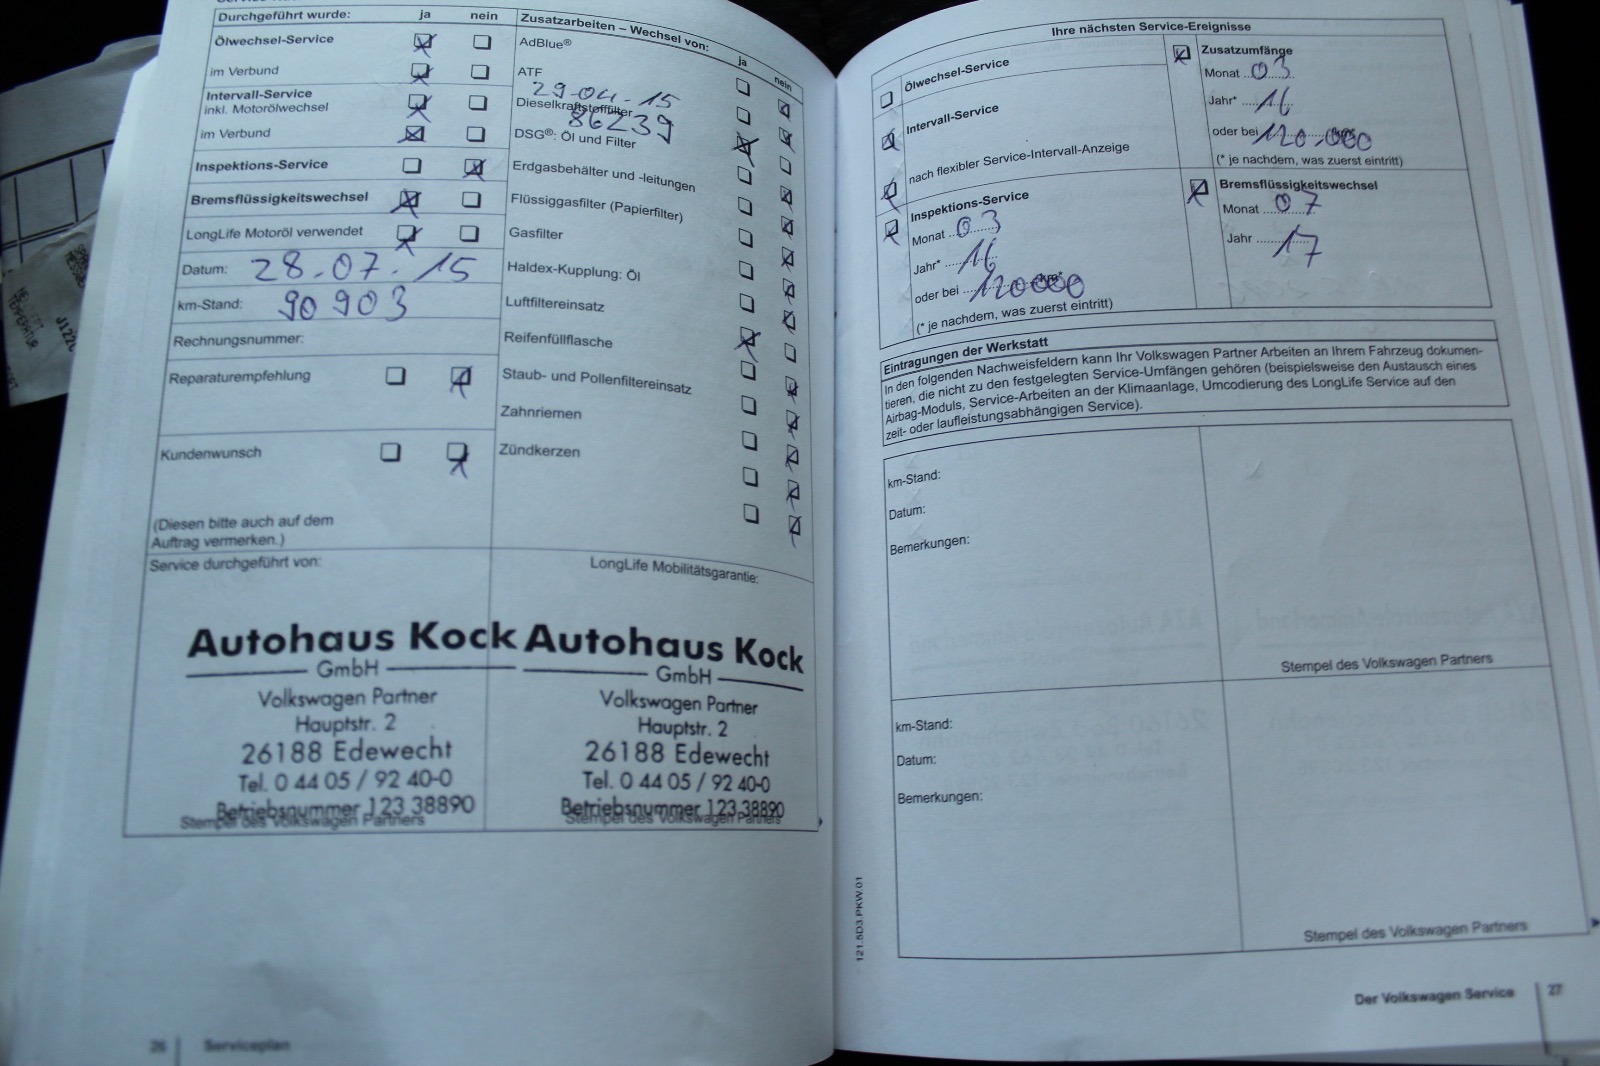 Durchgeführt wurde: ja nein
Ölwechsel-Service
im Verbund
Intervall-Service
inkl. Motorölwechsel
im Verbund
Inspektions-Service
Bremsflüssigkeitswechsel
LongLife Motoröl verwendet
Datum: 28.07.15
km-Stand: 90903
Rechnungsnummer:
Reparaturempfehlung
Kundenwunsch
(Diesen bitte auch auf dem
Auftrag vermerken.)
Zusatzarbeiten – Wechsel von: ja nein
AdBlue®
ATF
29.04.15
Dieselkraftstofffilter
86239
DSG®: Öl und Filter
Erdgasbehälter und -leitungen
Flüssiggasfilter (Papierfilter)
Gasfilter
Haldex-Kupplung: Öl
Luftfiltereinsatz
Reifenfüllflasche
Staub- und Pollenfiltereinsatz
Zahnriemen
Zündkerzen
Service durchgeführt von:
Autohaus Kock
GmbH
Volkswagen Partner
Hauptstr. 2
26188 Edewecht
Tel. 0 44 05 / 92 40-0
Betriebsnummer 123 38890
Stempel des Volkswagen Partners
LongLife Mobilitätsgarantie:
Autohaus Kock
GmbH
Volkswagen Partner
Hauptstr. 2
26188 Edewecht
Tel. 0 44 05 / 92 40-0
Betriebsnummer 123 38890
Stempel des Volkswagen Partners
26 Serviceplan
Ihre nächsten Service-Ereignisse
Ölwechsel-Service
Intervall-Service
nach flexibler Service-Intervall-Anzeige
Inspektions-Service
Monat 03
Jahr* 16
oder bei 120000 km*
(* je nachdem, was zuerst eintritt)
Zusatzumfänge
Monat 03
Jahr* 16
oder bei 120.000 km*
(* je nachdem, was zuerst eintritt)
Bremsflüssigkeitswechsel
Monat 07
Jahr 17
Eintragungen der Werkstatt
In den folgenden Nachweisfeldern kann Ihr Volkswagen Partner Arbeiten an Ihrem Fahrzeug dokumen-
tieren, die nicht zu den festgelegten Service-Umfängen gehören (beispielsweise den Austausch eines
Airbag-Moduls, Service-Arbeiten an der Klimaanlage, Umcodierung des LongLife Service auf den
zeit- oder laufleistungsabhängigen Service).
km-Stand:
Datum:
Bemerkungen:
Stempel des Volkswagen Partners
km-Stand:
Datum:
Bemerkungen:
Stempel des Volkswagen Partners
121.5D3.PKW.01
Der Volkswagen Service 27